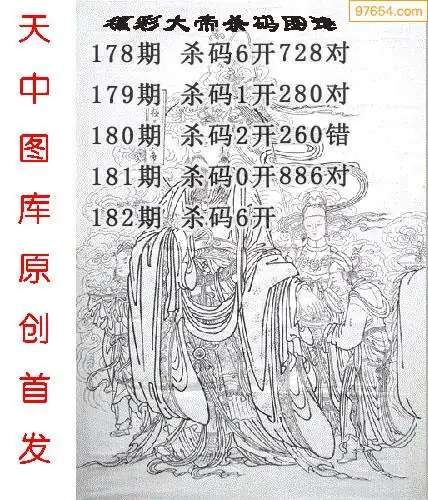 97654.com
天中图库原创首发
福彩大帝杀码图迷
178期 杀码6开728对
179期 杀码1开280对
180期 杀码2开260错
181期 杀码0开886对
182期 杀码6开